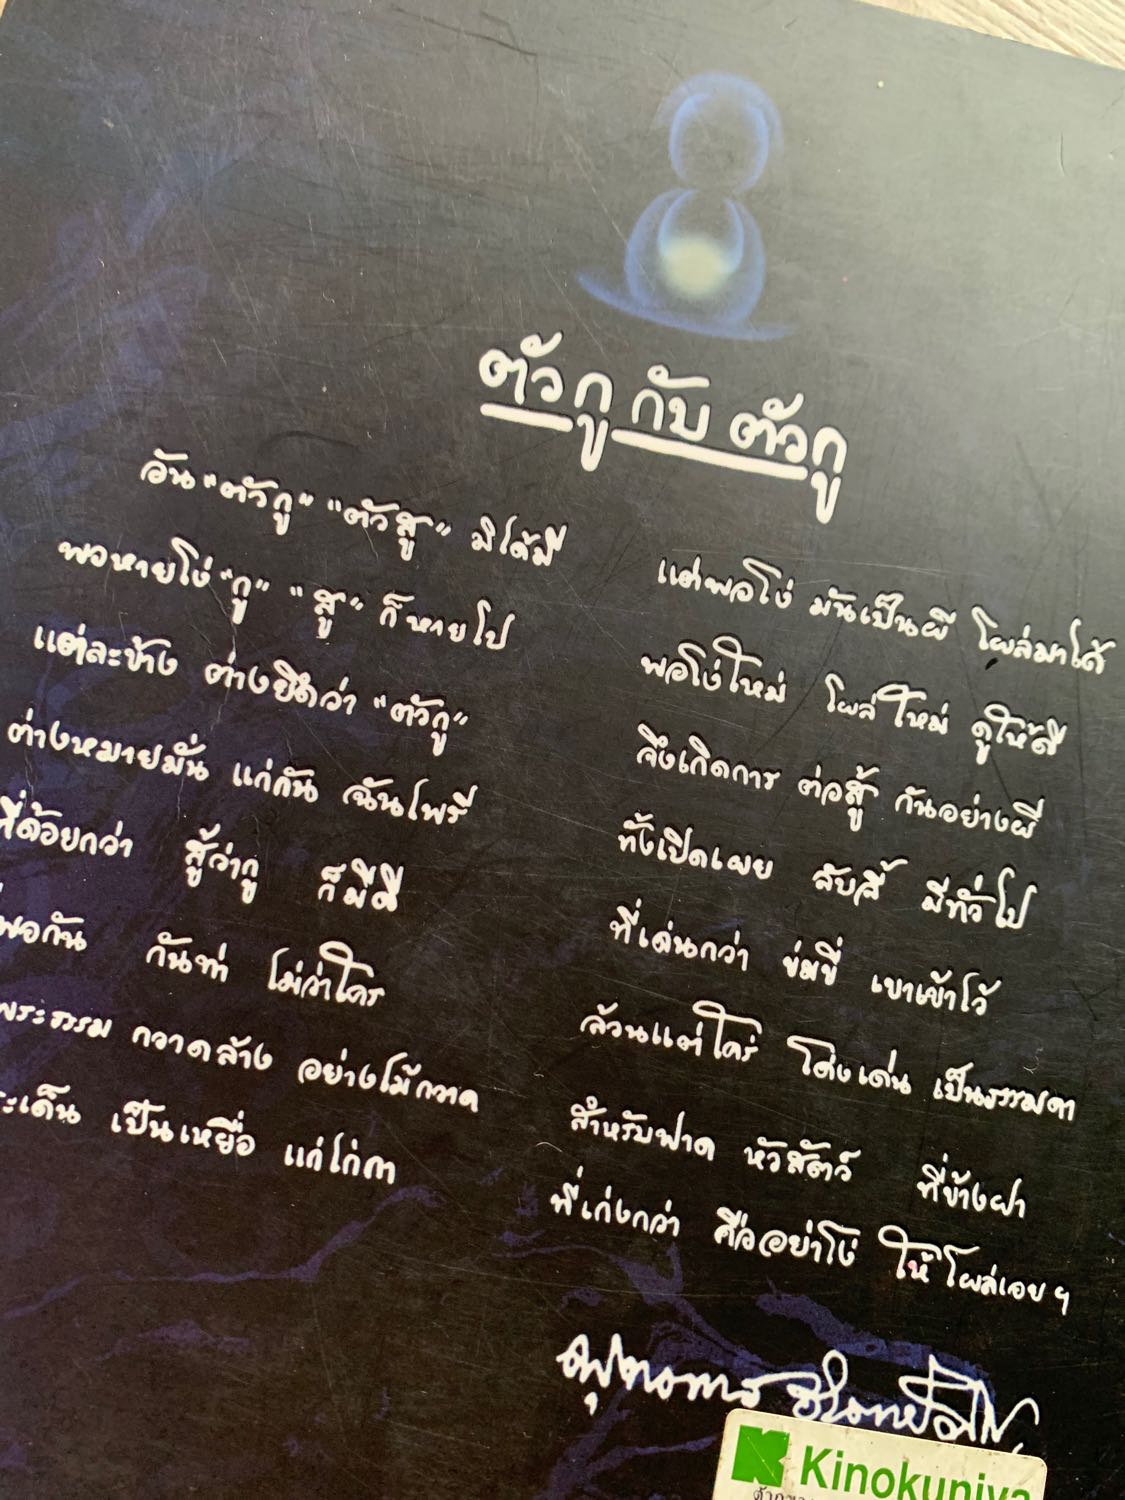 ตัวกู กับ ตัวกู
อัน "ตัวกู" "ตัวสู" มิได้มี แต่พอโง่ มันเป็นผี โผล่มาได้
พอหายโง่ "กู" "สู" ก็หายไป พอโง่ใหม่ โผล่ใหม่ ดูให้ดี
แต่ละข้าง ต่างยึดว่า "ตัวกู" จึงเกิดการ ต่อสู้ กันอย่างผี
ต่างหมายมั่น แก่กัน ฉันไพรี ทั้งเปิดเผย ลับลี้ มีทั่วไป
ที่ด้อยกว่า สู้ว่ากู ก็มีดี ที่เด่นกว่า ข่มขี่ เขาเข้าไว้
พอกัน กันท่า ไม่ว่าใคร ล้วนแต่ใคร่ โด่งเด่น เป็นธรรมดา
พระธรรม กวาดล้าง อย่างไม้กวาด สำหรับฟาด หัวสัตว์ ที่ข้างฝา
เป็นเหยื่อ แก่ไก่กา ที่เก่งกว่า คืออย่าโง่ ให้โผล่เอย ฯ
พุทธทาส อินทปัญโญ
Kinokuniya